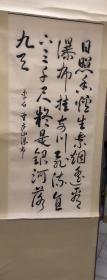 日照香炉生紫烟遥看
瀑布挂前川飞流直
下三千尺疑是银河落
九天
李白望庐山瀑布